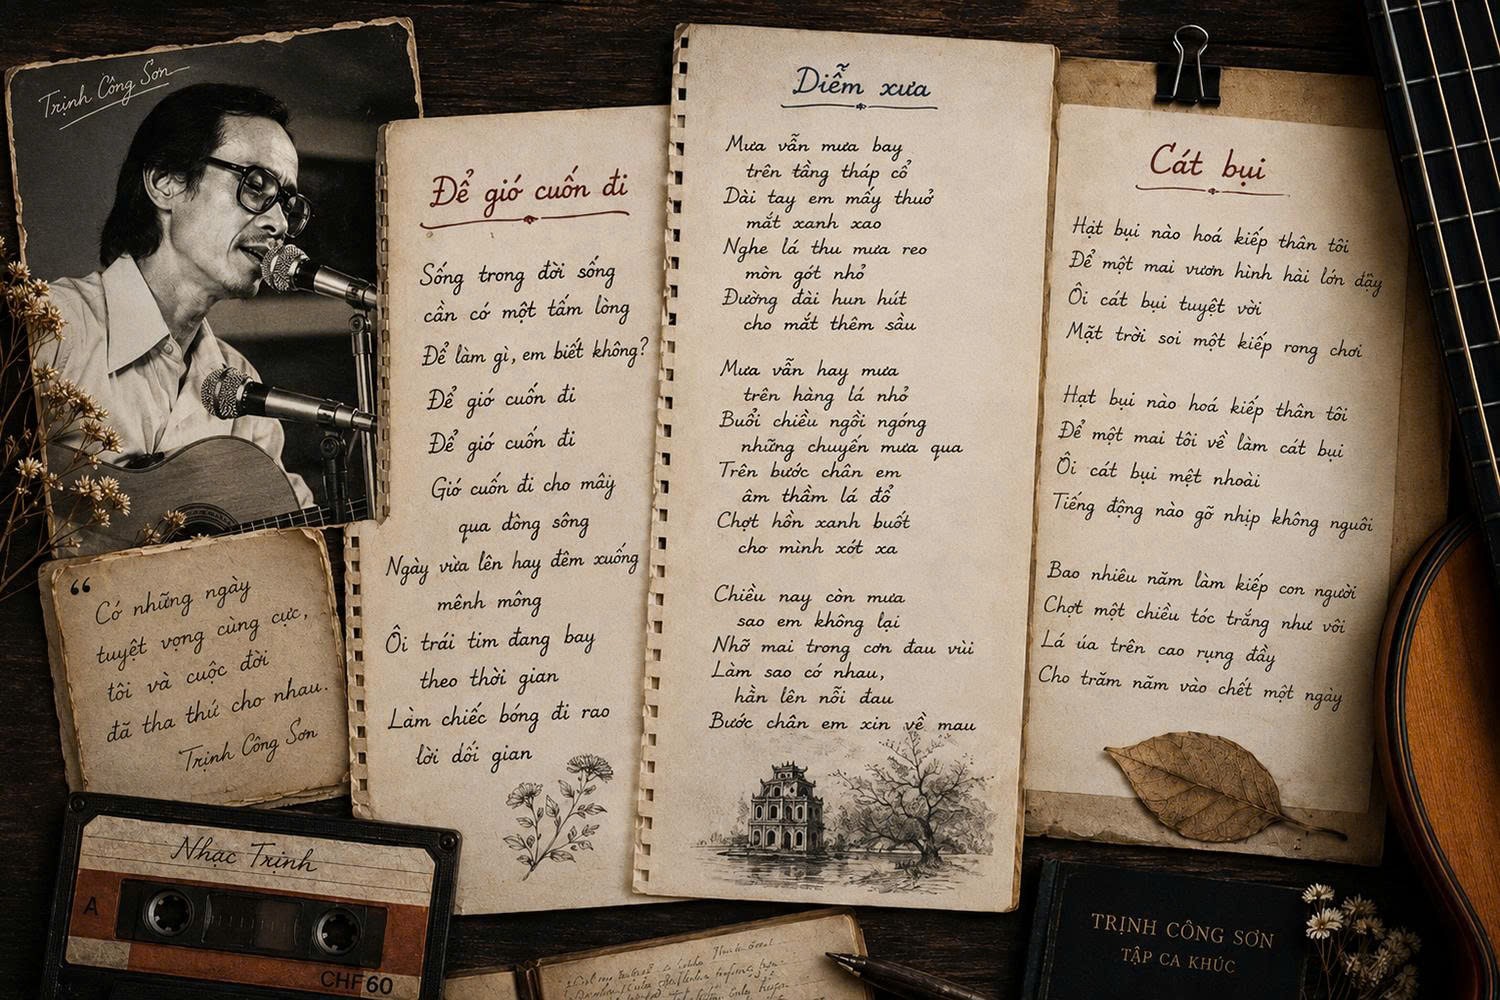 Trịnh Công Sơn
Để gió cuốn đi
Sống trong đời sống
cần có một tấm lòng
Để làm gì, em biết không?
Để gió cuốn đi
Để gió cuốn đi
Gió cuốn đi cho mây
qua dòng sông
Ngày vừa lên hay đêm xuống
mênh mông
Ôi trái tim đang bay
theo thời gian
Làm chiếc bóng đi rao
lời dối gian
Diễm xưa
Mưa vẫn mưa bay
trên tầng tháp cổ
Dài tay em mấy thuở
mắt xanh xao
Nghe lá thu mưa reo
mòn gót nhỏ
Đường dài hun hút
cho mắt thêm sầu
Mưa vẫn hay mưa
trên hàng lá nhỏ
Buổi chiều ngồi ngóng
những chuyến mưa qua
Trên bước chân em
âm thầm lá đổ
Chợt hồn xanh buốt
cho mình xót xa
Chiều nay còn mưa
sao em không lại
Nhỡ mai trong cơn đau vùi
Làm sao có nhau,
hằn lên nỗi đau
Bước chân em xin về mau
Cát bụi
Hạt bụi nào hoá kiếp thân tôi
Để một mai vươn hình hài lớn dậy
Ôi cát bụi tuyệt vời
Mặt trời soi một kiếp rong chơi
Hạt bụi nào hoá kiếp thân tôi
Để một mai tôi về làm cát bụi
Ôi cát bụi mệt nhoài
Tiếng động nào gõ nhịp không nguôi
Bao nhiêu năm làm kiếp con người
Chợt một chiều tóc trắng như vôi
Lá úa trên cao rụng đầy
Cho trăm năm vào chết một ngày
“ Có những ngày
tuyệt vọng cùng cực,
tôi và cuộc đời
đã tha thứ cho nhau.
Trịnh Công Sơn
Nhạc Trịnh
A
CHF60
TRỊNH CÔNG SƠN
TẬP CA KHÚC